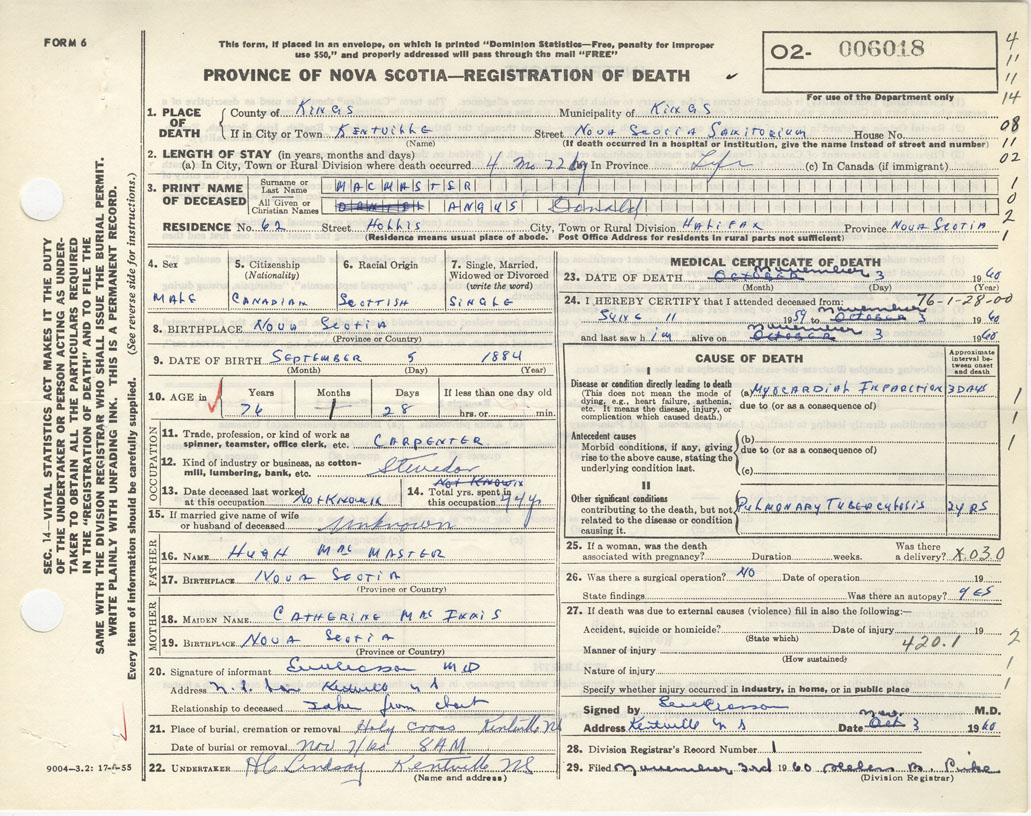 FORM 6
This form, if placed in an envelope, on which is printed "Dominion Statistics—Free, penalty for improper
use $50," and properly addressed will pass through the mail "FREE"
PROVINCE OF NOVA SCOTIA—REGISTRATION OF DEATH
02- 006018
For use of the Department only
4
11
11
14
08
11
02
1. PLACE OF DEATH
County of KINGS Municipality of KINGS
If in City or Town KENTVILLE Street NOVA SCOTIA SANITORIUM House No.
(Name) (If death occurred in a hospital or institution, give the name instead of street and number)
2. LENGTH OF STAY (in years, months and days)
(a) In City, Town or Rural Division where death occurred 4 mo 22 dy In Province Life (c) In Canada (if immigrant)
3. PRINT NAME OF DECEASED
Surname or Last Name MACMASTER
All Given or Christian Names ANGUS Donald
RESIDENCE No. 62 Street HOLLIS City, Town or Rural Division HALIFAX Province NOVA SCOTIA
(Residence means usual place of abode. Post Office Address for residents in rural parts not sufficient)
4. Sex
MALE
5. Citizenship
(Nationality)
CANADIAN
6. Racial Origin
SCOTTISH
7. Single, Married,
Widowed or Divorced
(write the word)
SINGLE
8. BIRTHPLACE NOVA SCOTIA
(Province or Country)
9. DATE OF BIRTH SEPTEMBER 5 1884
(Month) (Day) (Year)
10. AGE in Years Months Days If less than one day old
76 1 28 hrs. or min.
OCCUPATION
11. Trade, profession, or kind of work as
spinner, teamster, office clerk, etc. CARPENTER
12. Kind of industry or business, as cotton-
mill, lumbering, bank, etc. Stevedor
13. Date deceased last worked
at this occupation NOT KNOWN
14. Total yrs. spent in
this occupation NOT KNOWN 44 yr
15. If married give name of wife
or husband of deceased Unknown
FATHER
16. NAME HUGH MAC MASTER
17. BIRTHPLACE NOVA SCOTIA
(Province or Country)
MOTHER
18. MAIDEN NAME CATHERINE MAC INNIS
19. BIRTHPLACE NOVA SCOTIA
(Province or Country)
20. Signature of informant MD
Address N.S. San Kentville N S
Relationship to deceased Taken from chart
21. Place of burial, cremation or removal Holy Cross Kentville NS
Date of burial or removal Nov 7/60 8 AM
22. UNDERTAKER Lindsay Kentville NS
(Name and address)
MEDICAL CERTIFICATE OF DEATH
23. DATE OF DEATH OCTOBER November 3 1960
(Month) (Day) (Year)
76-1-28-00
24. I HEREBY CERTIFY that I attended deceased from:
JUNE 11 1959 to OCTOBER November 3 1960
and last saw him alive on OCTOBER November 3 1960
CAUSE OF DEATH
Approximate interval between onset and death
I
Disease or condition directly leading to death
(This does not mean the mode of
dying, e.g., heart failure, asthenia,
etc. It means the disease, injury, or
complication which caused death.)
(a) MYOCARDIAL INFARCTION 3 DAYS
due to (or as a consequence of)
Antecedent causes
Morbid conditions, if any, giving
rise to the above cause, stating the
underlying condition last.
(b)
due to (or as a consequence of)
(c)
II
Other significant conditions
contributing to the death, but not
related to the disease or condition
causing it.
PULMONARY TUBERCULOSIS 2 YRS
25. If a woman, was the death
associated with pregnancy? Duration weeks. Was there
a delivery? X.030
26. Was there a surgical operation? NO Date of operation 19
State findings Was there an autopsy? YES
27. If death was due to external causes (violence) fill in also the following:—
Accident, suicide or homicide? Date of injury 19
(State which)
Manner of injury 420.1
(How sustained)
Nature of injury
Specify whether injury occurred in industry, in home, or in public place
Signed by M.D.
Address Kentville N S Date Oct Nov. 3 1960
28. Division Registrar's Record Number 1
29. Filed November 3rd 1960 Helen B.
(Division Registrar)
SEC. 14—VITAL STATISTICS ACT MAKES IT THE DUTY
OF THE UNDERTAKER OR PERSON ACTING AS UNDER-
TAKER TO OBTAIN ALL THE PARTICULARS REQUIRED
IN THE "REGISTRATION OF DEATH" AND TO FILE THE
SAME WITH THE DIVISION REGISTRAR WHO SHALL ISSUE THE BURIAL PERMIT.
WRITE PLAINLY WITH UNFADING INK. THIS IS A PERMANENT RECORD.
Every item of information should be carefully supplied. (See reverse side for instructions.)
9004-3.2: 17-A-55
1
0
2
1
1
1
1
2
1
1